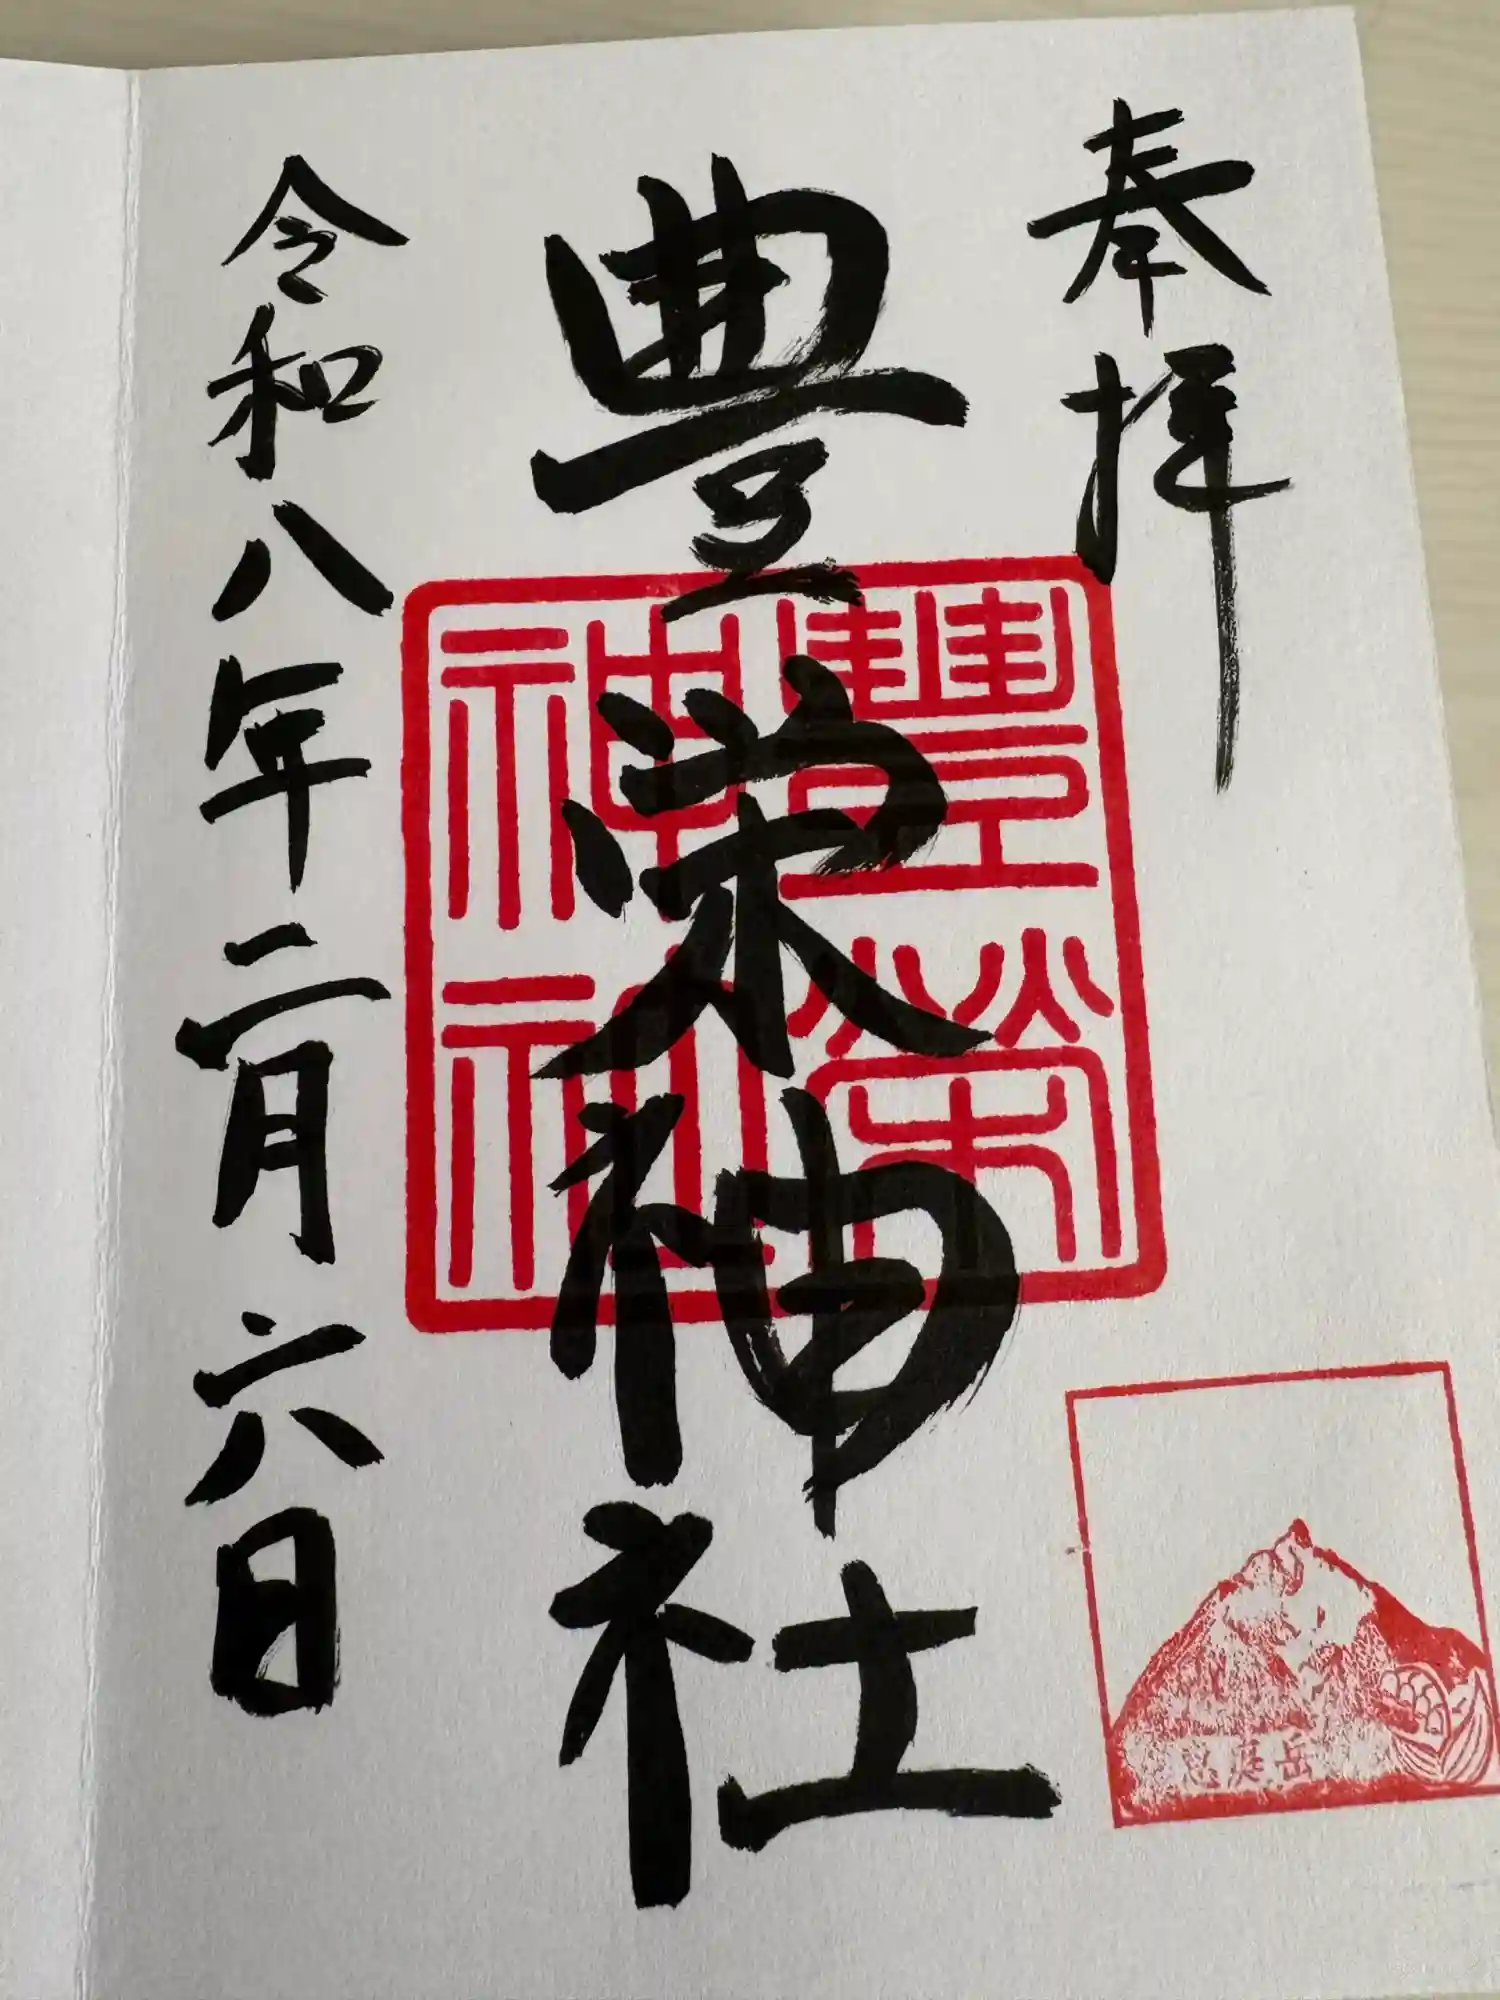 奉拝
豊栄神社
豐榮
神社
令和八年二月六日
恵庭岳